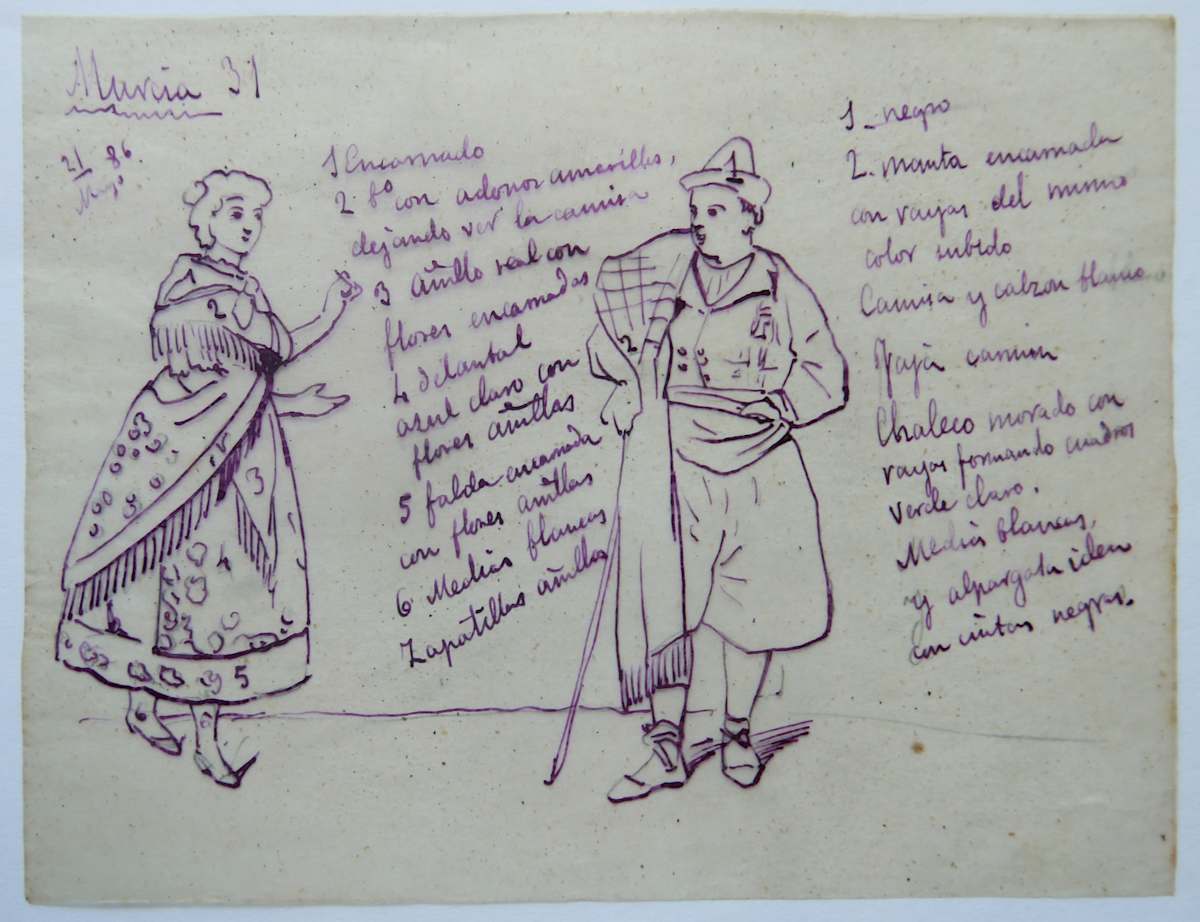 Murcia 31
21 Mayo 86.
1 Encarnado
2 bº con adornos amarillos,
dejando ver la camisa
3 añillo real con
flores encarnadas
4 delantal
azul claro con
flores añillas
5 falda encarnada
con flores añillas
6 Medias blancas
Zapatillas añillas
1 negro
2. manta encarnada
con rayas del mismo
color subido
Camisa y calzon blanco
Faja carmin
Chaleco morado con
rayas formando cuadros
verde claro.
Medias blancas,
y alpargata idem
con cintas negras.
1
2
3
3
4
5
6
1
2